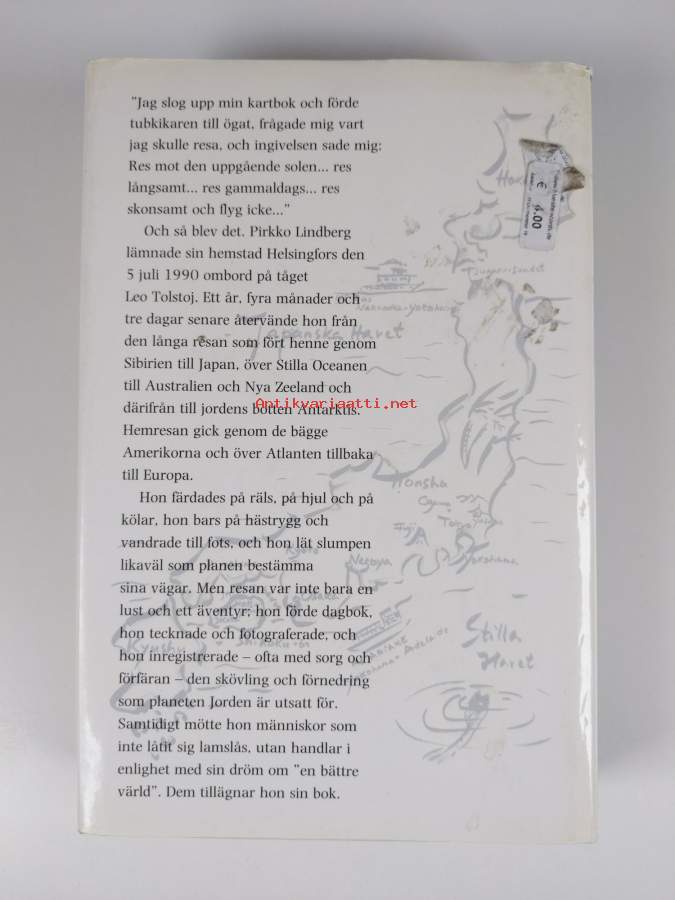 "Jag slog upp min kartbok och förde
tubkikaren till ögat, frågade mig vart
jag skulle resa, och ingivelsen sade mig:
Res mot den uppgående solen... res
långsamt... res gammaldags... res
skonsamt och flyg icke..."
Och så blev det. Pirkko Lindberg
lämnade sin hemstad Helsingfors den
5 juli 1990 ombord på tåget
Leo Tolstoj. Ett år, fyra månader och
tre dagar senare återvände hon från
den långa resan som fört henne genom
Sibirien till Japan, över Stilla Oceanen
till Australien och Nya Zeeland och
därifrån till jordens botten Antarktis.
Hemresan gick genom de bägge
Amerikorna och över Atlanten tillbaka
till Europa.
Hon färdades på räls, på hjul och på
kölar, hon bars på hästrygg och
vandrade till fots, och hon lät slumpen
likaväl som planen bestämma
sina vägar. Men resan var inte bara en
lust och ett äventyr; hon förde dagbok,
hon tecknade och fotograferade, och
hon inregistrerade – ofta med sorg och
förfäran – den skövling och förnedring
som planeten Jorden är utsatt för.
Samtidigt mötte hon människor som
inte låtit sig lamslås, utan handlar i
enlighet med sin dröm om "en bättre
värld". Dem tillägnar hon sin bok.
Antikvariaatti.net
Japanska Havet
Honshu
Nagoya
Yokohama
Kyushu
Shikoku
Stilla
Havet
€